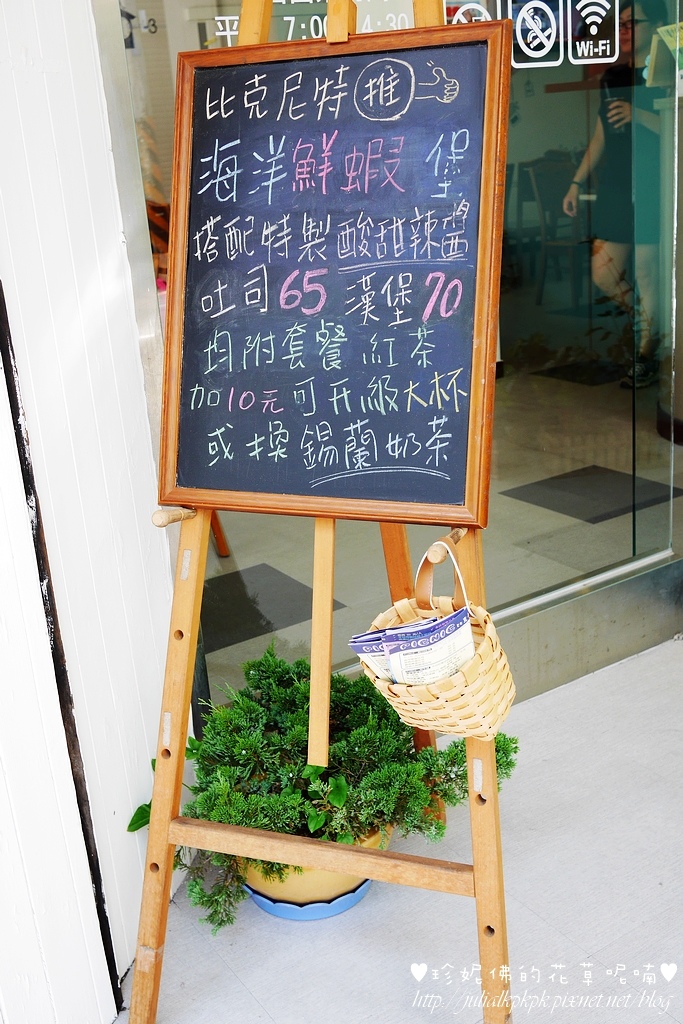 平 7:00 4:30
Wi-Fi
比克尼特推
海洋鮮蝦堡
搭配特製酸甜辣醬
吐司65 漢堡70
均附套餐紅茶
加10元可升級大杯
或換錫蘭奶茶
PICNICni
♥珍妮佛的花草呢喃♥
http://julialkpkpk.pixnet.net/blog